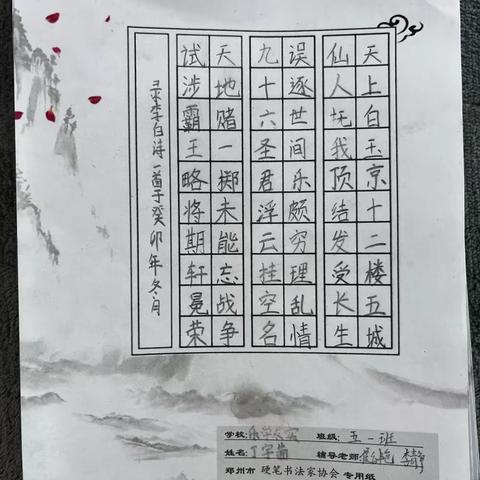 天上白玉京十二楼五城
仙人抚我顶结发受长生
误逐世间乐颇穷理乱情
九十六圣君浮云挂空名
天地赌一掷未能忘战争
试涉霸王略将期轩冕荣
录李白诗一首于癸卯年冬月
学校: 班级:五一班
姓名:丁宇菡 辅导老师:
郑州市 硬笔书法家协会 专用纸